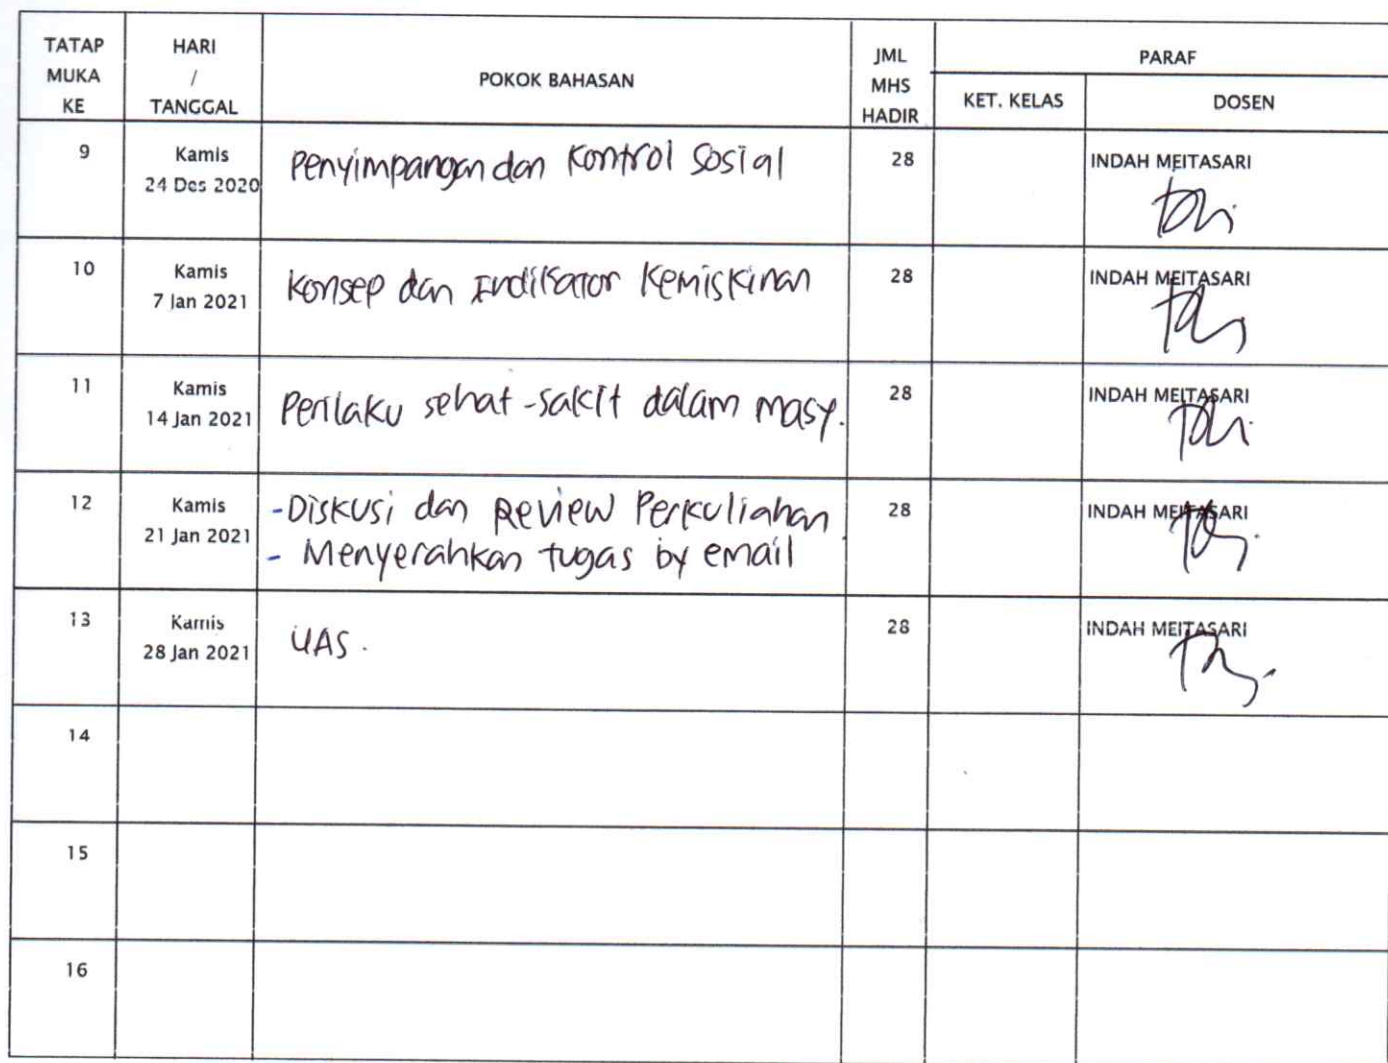 TATAP MUKA KE
HARI / TANGGAL
POKOK BAHASAN
JML MHS HADIR
PARAF
KET. KELAS
DOSEN
9
Kamis
24 Des 2020
Penyimpangan dan Kontrol Sosial
28
INDAH MEITASARI
10
Kamis
7 Jan 2021
Konsep dan Indikator Kemiskinan
28
INDAH MEITASARI
11
Kamis
14 Jan 2021
Perilaku sehat-sakit dalam masy.
28
INDAH MEITASARI
12
Kamis
21 Jan 2021
- Diskusi dan Review Perkuliahan
- Menyerahkan tugas by email
28
INDAH MEITASARI
13
Kamis
28 Jan 2021
UAS.
28
INDAH MEITASARI
14
15
16